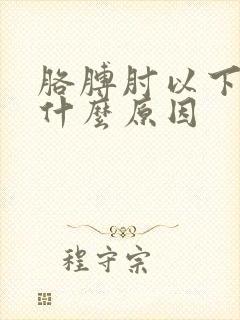 胳膊肘以下
什麼原因
程守宗